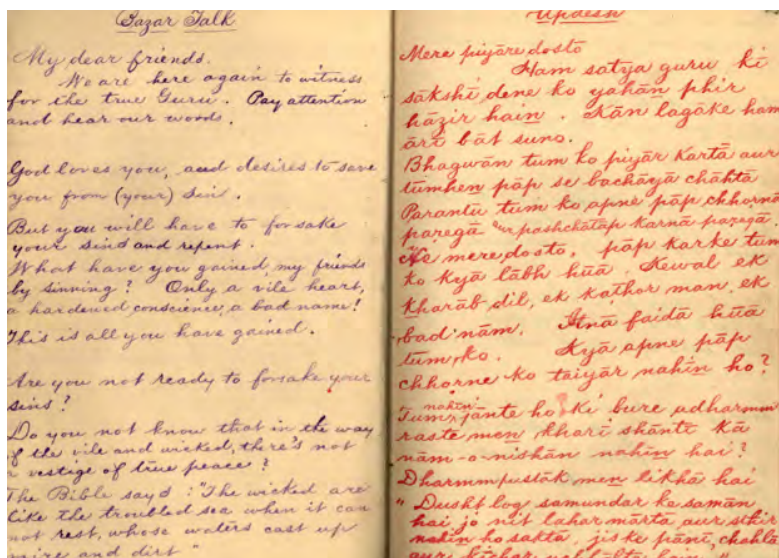 Bazar Talk
My dear friends.
We are here again to witness
for the true Guru. Pay attention
and hear our words.
God loves you, and desires to save
you from (your) sin.
But you will have to forsake
your sins and repent.
What have you gained, my friends
by sinning? Only a vile heart,
a hardened conscience, a bad name!
This is all you have gained.
Are you not ready to forsake your
sins?
Do you not know that in the way
of the vile and wicked, there's not
a vestige of true peace?
The Bible says: "The wicked are
like the troubled sea when it can
not rest, whose waters cast up
mire and dirt"
Updesh
Mere piyāre dosto
Ham satya guru kī
sākshī dene ko yahān phir
hāzir hain. Kān lagāke ham
ārī bāt suno.
Bhagwān tum ko piyār kartā aur
tumhen pāp se bachāyā chāhtā
Parantū tum ko apne pāp chhornā
paregā aur pashchātāp karnā paregā.
He mere dosto, pāp karke tum
ko kyā lābh hūā. Kewal ek
kharāb dil, ek kathor man, ek
bad nām. Itnā faidā hūā
tum ko. Kyā apne pāp
chhorne ko taiyār nahīn ho?
Tum nahīn jānte ho ki bure adharmm
raste men kharī shānti kā
nām-o-nishān nahīn hai?
Dharmmpustāk men likhā hai
"Dusht log samundar ke samān
hai jo nit lahar mārtā aur sthir
nahīn ho saktā, jis ke pānī, chahlā
aur kīchar